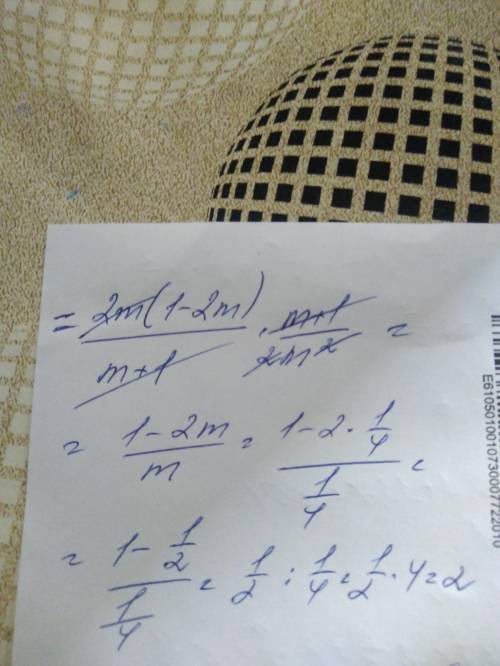 = 2m(1-2m)/m+1 · m+1/2m² =
= 1-2m/m = 1-2·1/4 / 1/4 =
= 1-1/2 / 1/4 = 1/2 : 1/4 = 1/2 · 4 = 2
E6105010010730007722010